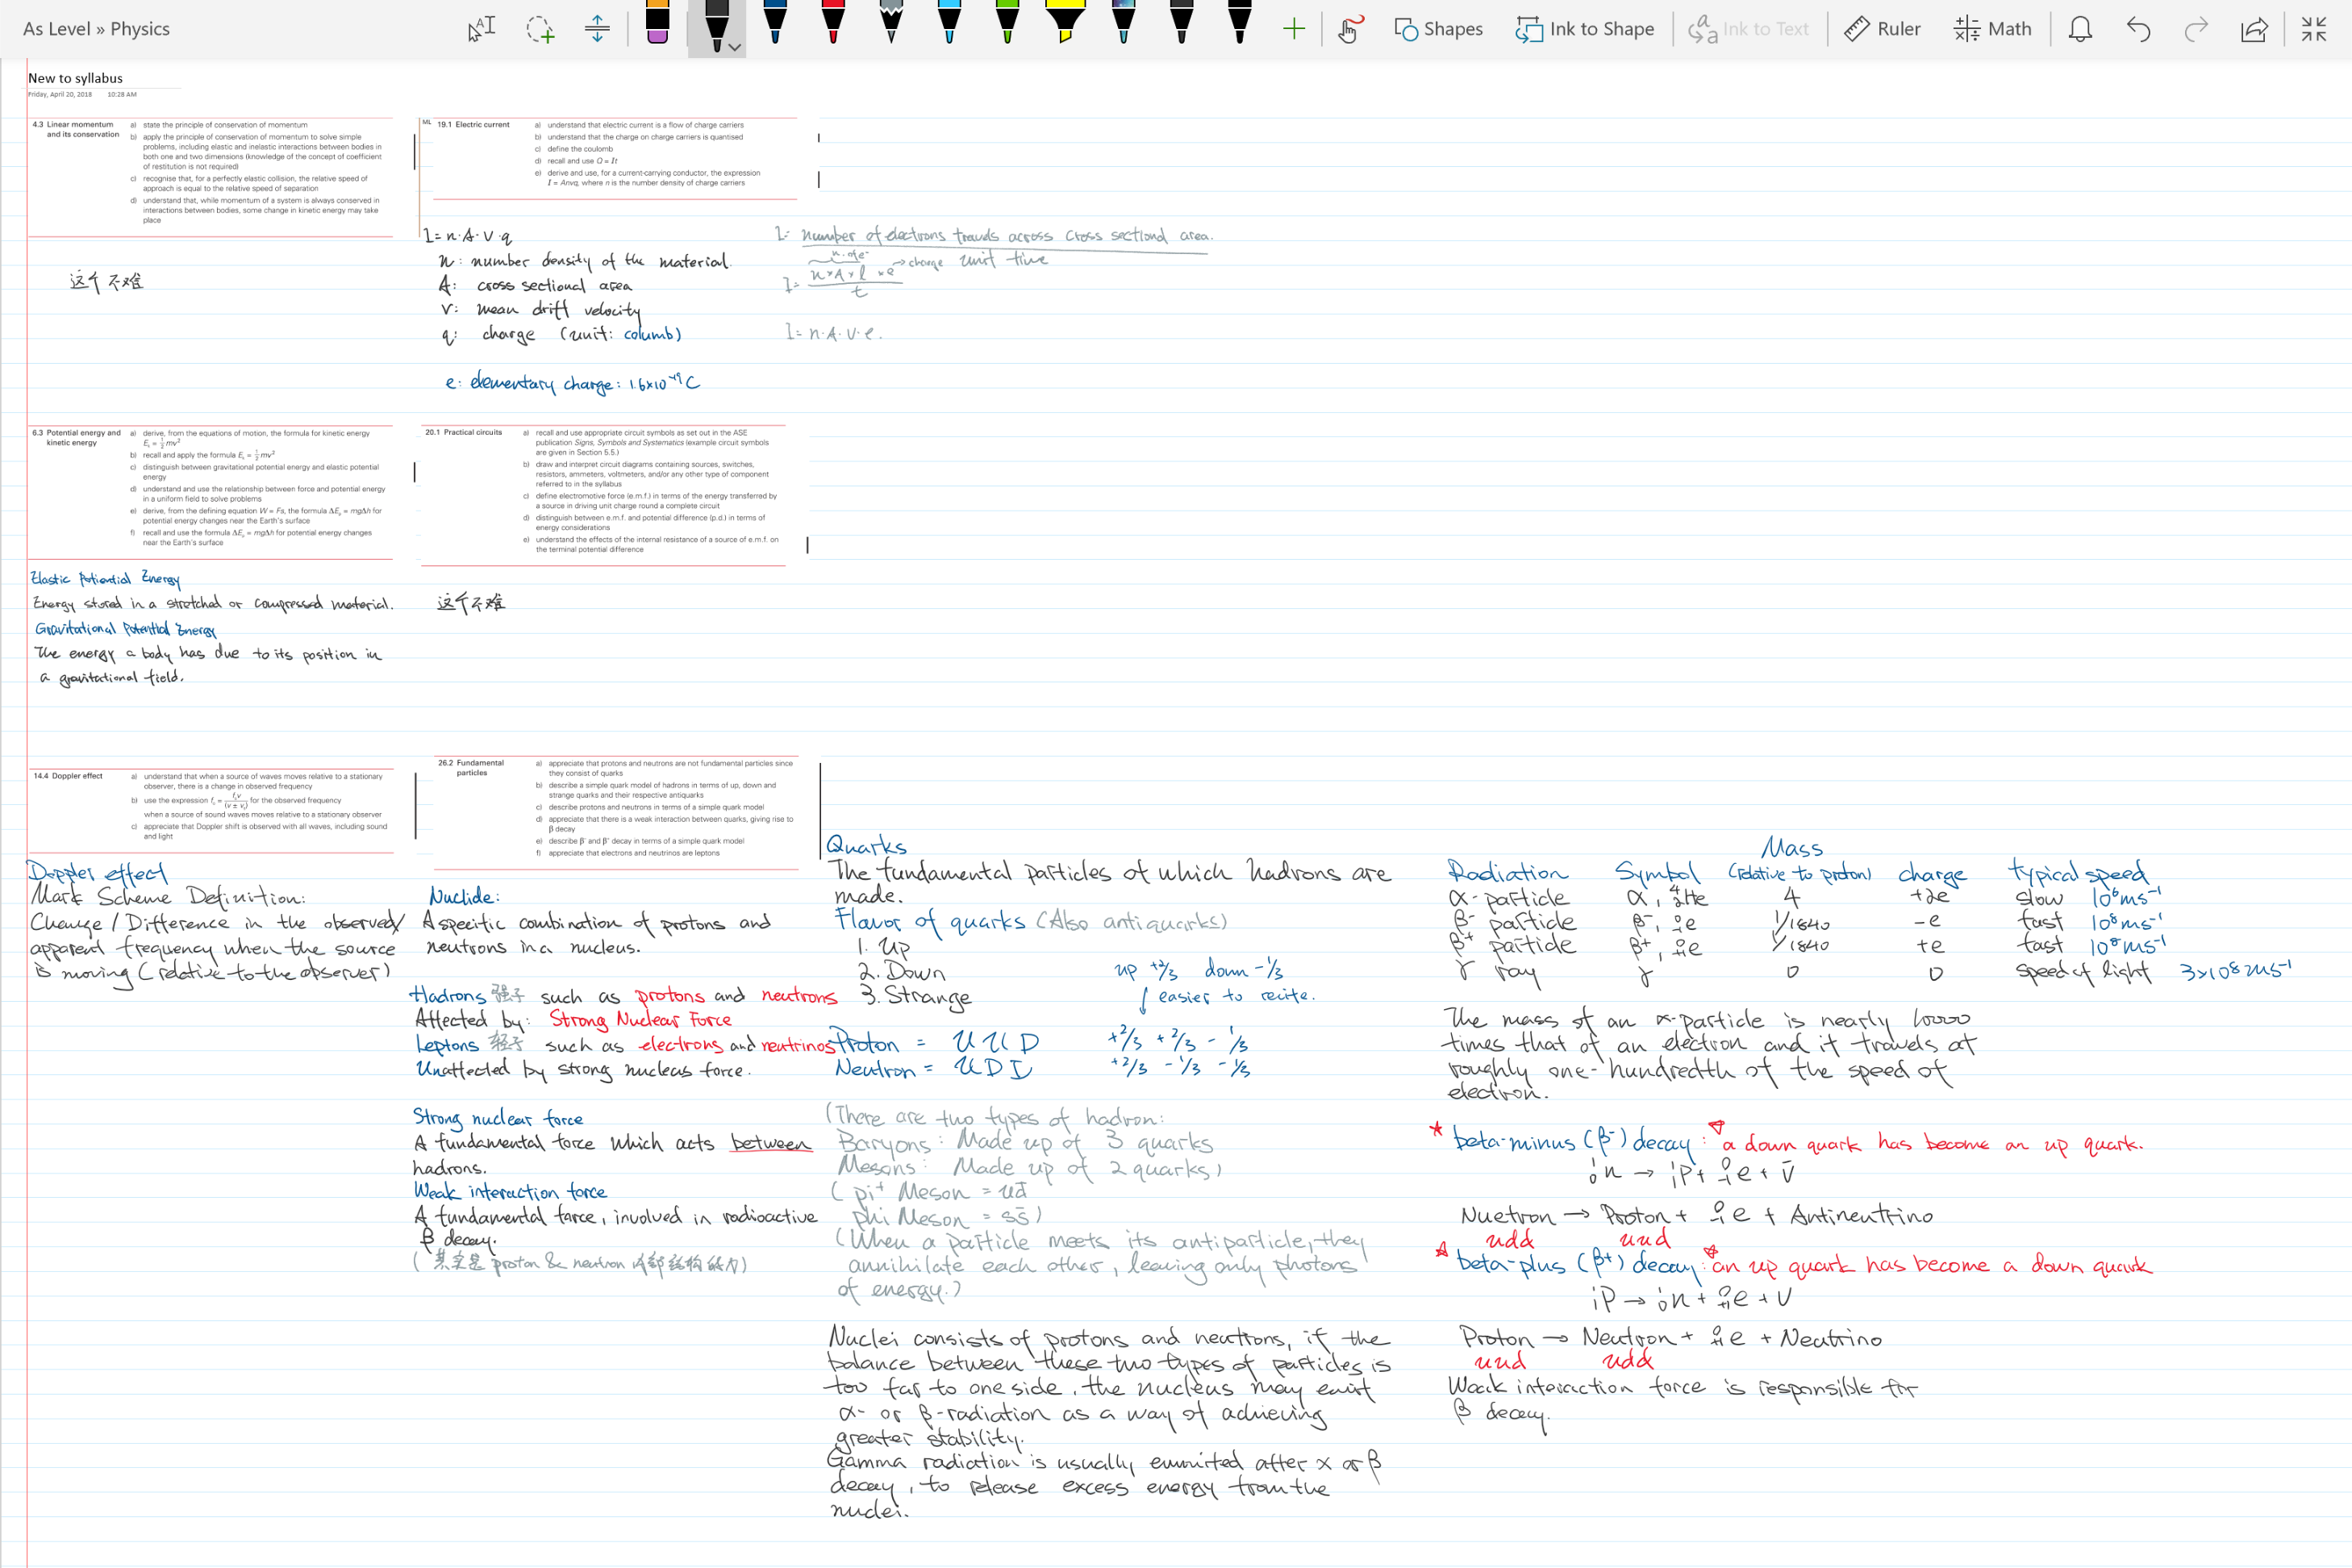 As Level » Physics
Shapes
Ink to Shape
Ink to Text
Ruler
Math
New to syllabus
Friday, April 20, 2018 10:28 AM
4.3 Linear momentum and its conservation
a) state the principle of conservation of momentum
b) apply the principle of conservation of momentum to solve simple
problems, including elastic and inelastic interactions between bodies in
both one and two dimensions (knowledge of the concept of coefficient
of restitution is not required)
c) recognise that, for a perfectly elastic collision, the relative speed of
approach is equal to the relative speed of separation
d) understand that, while momentum of a system is always conserved in
interactions between bodies, some change in kinetic energy may take
place
这个不难
ML
19.1 Electric current
a) understand that electric current is a flow of charge carriers
b) understand that the charge on charge carriers is quantised
c) define the coulomb
d) recall and use Q = It
e) derive and use, for a current-carrying conductor, the expression
I = Anvq, where n is the number density of charge carriers
I = n·A·V·q
n: number density of the material.
A: cross sectional area
v: mean drift velocity
q: charge (unit: columb)
e: elementary charge: 1.6×10⁻¹⁹C
I = number of electrons travels across cross sectional area.
unit time
n. of e⁻
I = n×A×l ×e → charge
t
I = n·A·V·e.
6.3 Potential energy and kinetic energy
a) derive, from the equations of motion, the formula for kinetic energy
Eₖ = ½mv²
b) recall and apply the formula Eₖ = ½mv²
c) distinguish between gravitational potential energy and elastic potential
energy
d) understand and use the relationship between force and potential energy
in a uniform field to solve problems
e) derive, from the defining equation W = Fs, the formula ΔEₚ = mgΔh for
potential energy changes near the Earth's surface
f) recall and use the formula ΔEₚ = mgΔh for potential energy changes
near the Earth's surface
Elastic Potiential Energy
Energy stored in a stretched or compressed material.
Gravitational Potential Energy
The energy a body has due to its position in
a gravitational field.
20.1 Practical circuits
a) recall and use appropriate circuit symbols as set out in the ASE
publication Signs, Symbols and Systematics (example circuit symbols
are given in Section 5.5.)
b) draw and interpret circuit diagrams containing sources, switches,
resistors, ammeters, voltmeters, and/or any other type of component
referred to in the syllabus
c) define electromotive force (e.m.f.) in terms of the energy transferred by
a source in driving unit charge round a complete circuit
d) distinguish between e.m.f. and potential difference (p.d.) in terms of
energy considerations
e) understand the effects of the internal resistance of a source of e.m.f. on
the terminal potential difference
这个不难
14.4 Doppler effect
a) understand that when a source of waves moves relative to a stationary
observer, there is a change in observed frequency
b) use the expression fₒ = fₛv / (v ± vₛ) for the observed frequency
when a source of sound waves moves relative to a stationary observer
c) appreciate that Doppler shift is observed with all waves, including sound
and light
Doppler effect
Mark Scheme Definition:
Change / Difference in the observed/
apparent frequency when the source
is moving (relative to the observer)
26.2 Fundamental particles
a) appreciate that protons and neutrons are not fundamental particles since
they consist of quarks
b) describe a simple quark model of hadrons in terms of up, down and
strange quarks and their respective antiquarks
c) describe protons and neutrons in terms of a simple quark model
d) appreciate that there is a weak interaction between quarks, giving rise to
β decay
e) describe β⁻ and β⁺ decay in terms of a simple quark model
f) appreciate that electrons and neutrinos are leptons
Nuclide:
A specific combination of protons and
neutrons in a nucleus.
Hadrons 强子 such as protons and neutrons
Affected by: Strong Nuclear Force
Leptons 轻子 such as electrons and neutrinos
Unaffected by strong nucleus force.
Strong nuclear force
A fundamental force which acts between
hadrons.
Weak interaction force
A fundamental force, involved in radioactive
β decay.
(其实是 proton & neutron 内部结构的力)
Quarks
The fundamental particles of which hadrons are
made.
Flavor of quarks (Also antiquarks)
1. Up
2. Down
3. Strange
up +2/3 down -1/3
easier to recite.
Proton = U U D +2/3 +2/3 - 1/3
Neutron = U D D +2/3 -1/3 -1/3
(There are two types of hadron:
Baryons: Made up of 3 quarks
Mesons: Made up of 2 quarks)
( pi⁺ Meson = ud̄
phi Meson = ss̄ )
(When a particle meets its antiparticle, they
annihilate each other, leaving only photons
of energy.)
Nuclei consists of protons and neutrons, if the
balance between these two types of particles is
too far to one side, the nucleus may emit
α- or β-radiation as a way of achieving
greater stability.
Gamma radiation is usually emmited after α or β
decay, to release excess energy from the
nuclei.
Radiation Symbol Mass (relative to proton) charge typical speed
α-particle α, ⁴₂He 4 +2e slow 10⁶ms⁻¹
β⁻ particle β⁻, ⁰₋₁e 1/1840 -e fast 10⁸ms⁻¹
β⁺ particle β⁺, ⁰₊₁e 1/1840 +e fast 10⁸ms⁻¹
γ ray γ 0 0 speed of light 3×10⁸ms⁻¹
The mass of an α-particle is nearly 10000
times that of an electron and it travels at
roughly one-hundredth of the speed of
electron.
★ beta-minus (β⁻) decay: a down quark has become an up quark.
¹₀n → ¹₁P + ⁰₋₁e + ν̄
Nuetron → Proton + ⁰₋₁e + Antineutrino
udd uud
★ beta-plus (β⁺) decay: an up quark has become a down quark
¹₁P → ¹₀n + ⁰₊₁e + ν
Proton → Neutron + ⁰₊₁e + Neutrino
uud udd
Weak interaction force is responsible for
β decay.